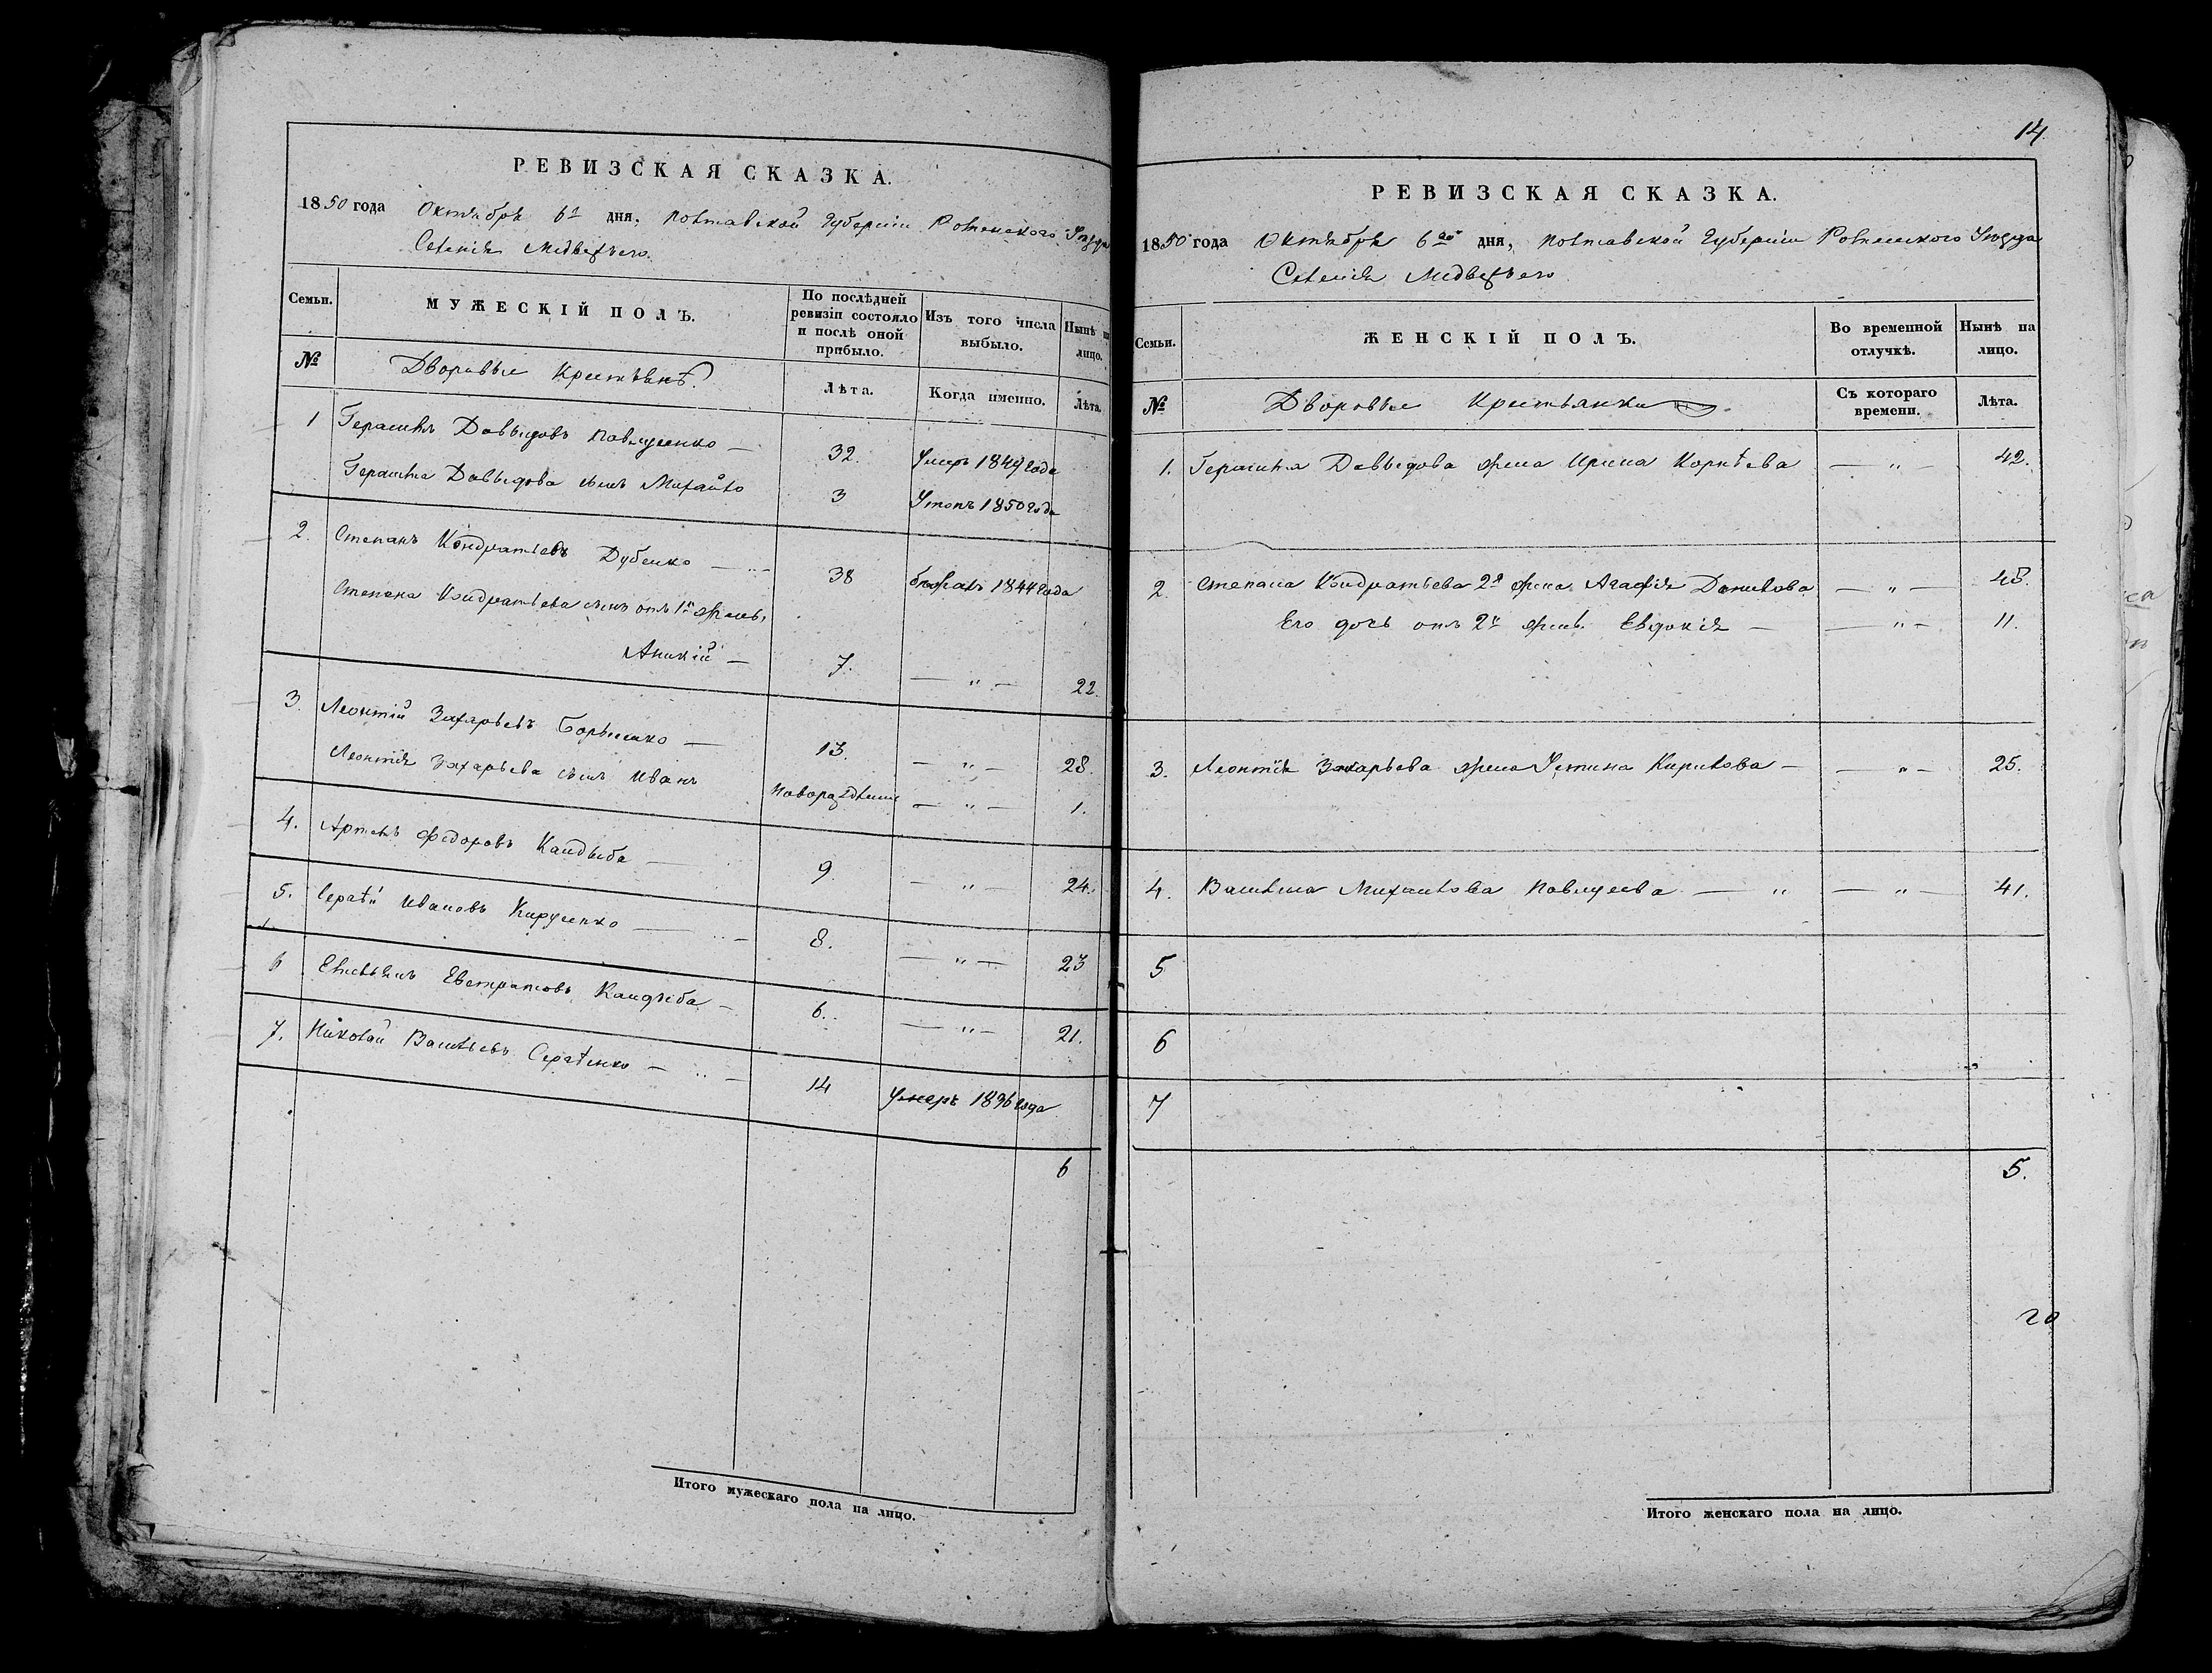 РЕВИЗСКАЯ СКАЗКА.
1850 года Октября 6го дня, Полтавской Губерніи Роменского Уѣзда
Селенія Медвежъего.
Семьи.
МУЖЕСКІЙ ПОЛЪ.
По послѣдней ревизіи состояло и послѣ оной прибыло.
Изъ того числа выбыло.
Нынѣ на лицо.
№
Дворовые Крестьянѣ
Лѣта.
Когда именно.
Лѣта.
1 Герасимъ Давыдовъ Павлусенко — 32. Умеръ 1849 года
Герасима Давыдова сынъ Михайло 3 Утопъ 1850 года
2. Степанъ Кондратьевъ Дубенко — 38 бежалъ 1844 года
Степана Кондратьева сынъ отъ 1й жены,
Аникій — 7. — " — 22.
3. Леонтій Захарьевъ Борысенко — 13. — " — 28.
Леонтія Захарьева сынъ Иванъ новорожденный — " — 1.
4. Артемъ Федоровъ Кандыба — 9. — " — 24.
5. Сергѣй Ивановъ Кирусенко — 8. — " — 23
6 Емельянъ Евстратовъ Кандыба — 6. — " — 21.
7. Николай Васильевъ Сергѣенко — 14 Умеръ 1836 года
6
Итого мужескаго пола на лицо.
14.
РЕВИЗСКАЯ СКАЗКА.
1850 года Октября 6го дня, Полтавской Губерніи Роменского Уѣзда
Селенія Медвежъего
Семьи.
ЖЕНСКІЙ ПОЛЪ.
Во временной отлучкѣ.
Нынѣ на лицо.
№
Дворовые Крестьянки
Съ котораго времени.
Лѣта.
1. Герасима Давыдова жена Ирина Корнѣева — " — 42.
2. Степана Кондратьева 2я жена Агафія Данилова — " — 48.
Его дочь отъ 2й жены Евдокія — — " — 11.
3. Леонтія Захарьева жена Устина Кирилова — — " — 25.
4. Васильна Михайлова Павлусева — " — " — 41.
5
6
7
5.
20
Итого женскаго пола на лицо.